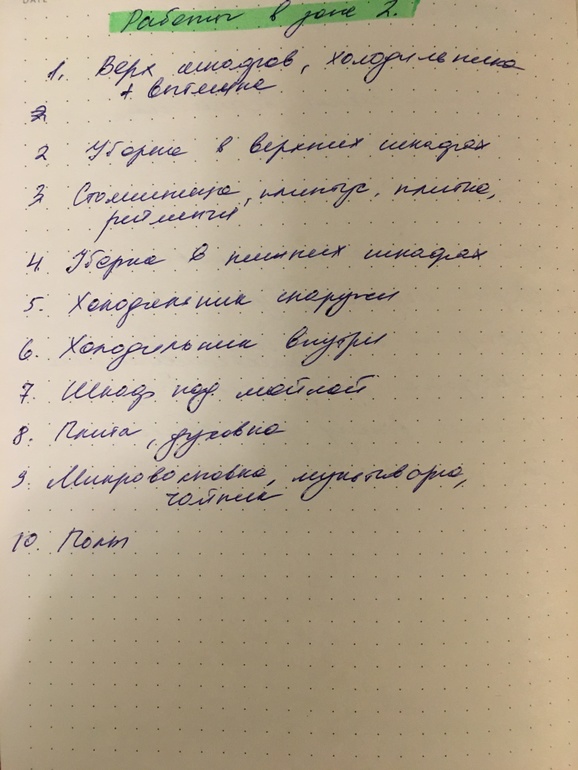 DATE
Работы в зоне 2.
1. Верх шкафов, холодильника
+ вытяжка
2
2 Уборка в верхних шкафах
3 Столешница, плинтус, плитка,
рейлинги
4. Уборка в нижних шкафах
5. Холодильник снаружи
6. Холодильник внутри
7. Шкаф под мойкой
8. Плита, духовка
9. Микроволновка, мультиварка,
чайник
10. Полы